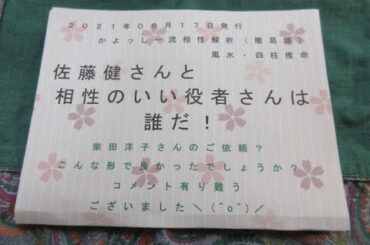 ２０２１年０６月１７日発行
かよっしー流相性解析（簡易版）
風水・四柱推命
佐藤健さんと
相性のいい役者さんは
誰だ！
柴田洋子さんのご依頼？
こんな形で良かったでしょうか？
コメント有り難う
ございました＼(^o^)／